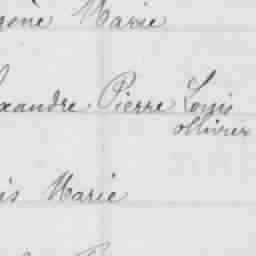 gène Marie
xandre Pierre Louis
ollivier
is Marie